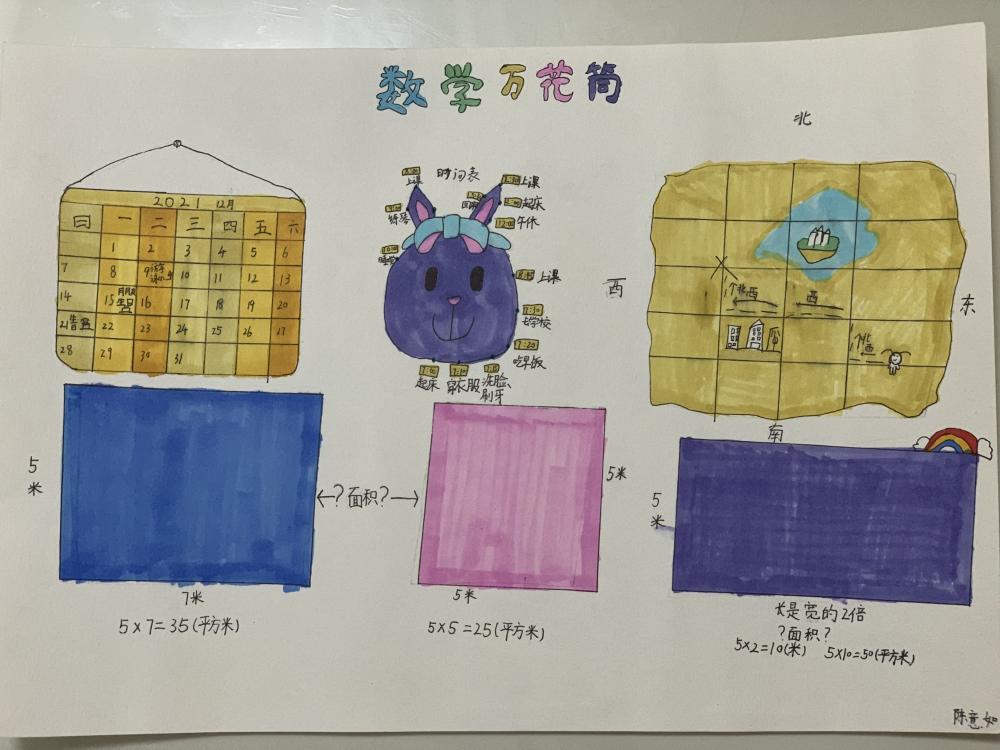 数学万花筒
2021 12月
日 一 二 三 四 五 六
1 2 3 4 5 6
7 8 9 10 11 12 13
14 15 生日 16 17 18 19 20
21 22 23 24 25 26 27
28 29 30 31
时间表
上课
上课
起床
午休
练琴
上课
去学校
7:20
吃早饭
7:00
起床
穿衣服
洗脸
刷牙
北
西
东
南
北
西
西
北
西
5
米
7米
5×7=35(平方米)
←?面积?→
5米
5米
5×5=25(平方米)
5
米
长是宽的2倍
?面积?
5×2=10(米) 5×10=50(平方米)
陈意如